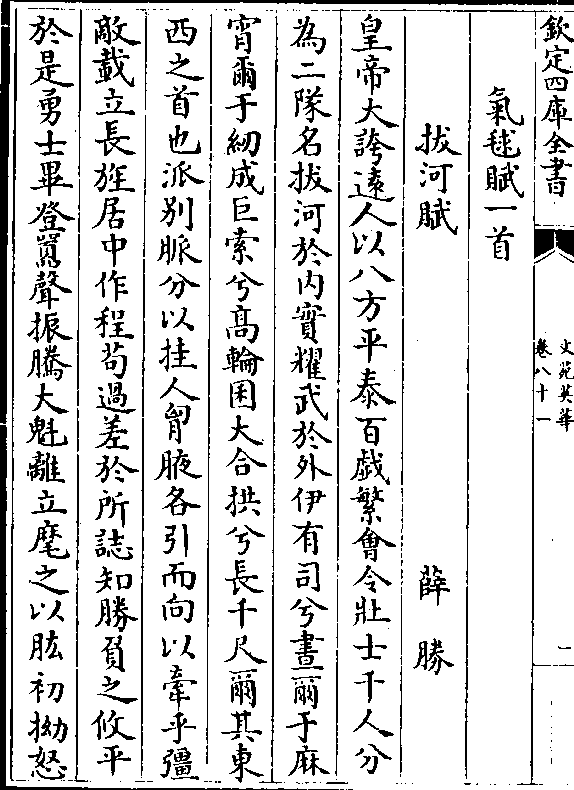 欽定四庫全書
文苑英華
卷八十一
二
氣毬賦一首
拔河賦
薛勝
皇帝大誇遠人以八方平泰百戯繁㑹令壯士千人分
為二隊名拔河於内實耀武於外伊有司兮晝爾于麻
宵爾于紉成巨索兮高輪囷大合拱兮長千尺爾其東
西之首也派别脈分以挂人胷腋各引而向以牽乎彊
敵載立長旌居中作程茍過差於所誌知勝負之攸平
於是勇士畢登嚻聲振騰大魁離立麾之以肱初拗怒